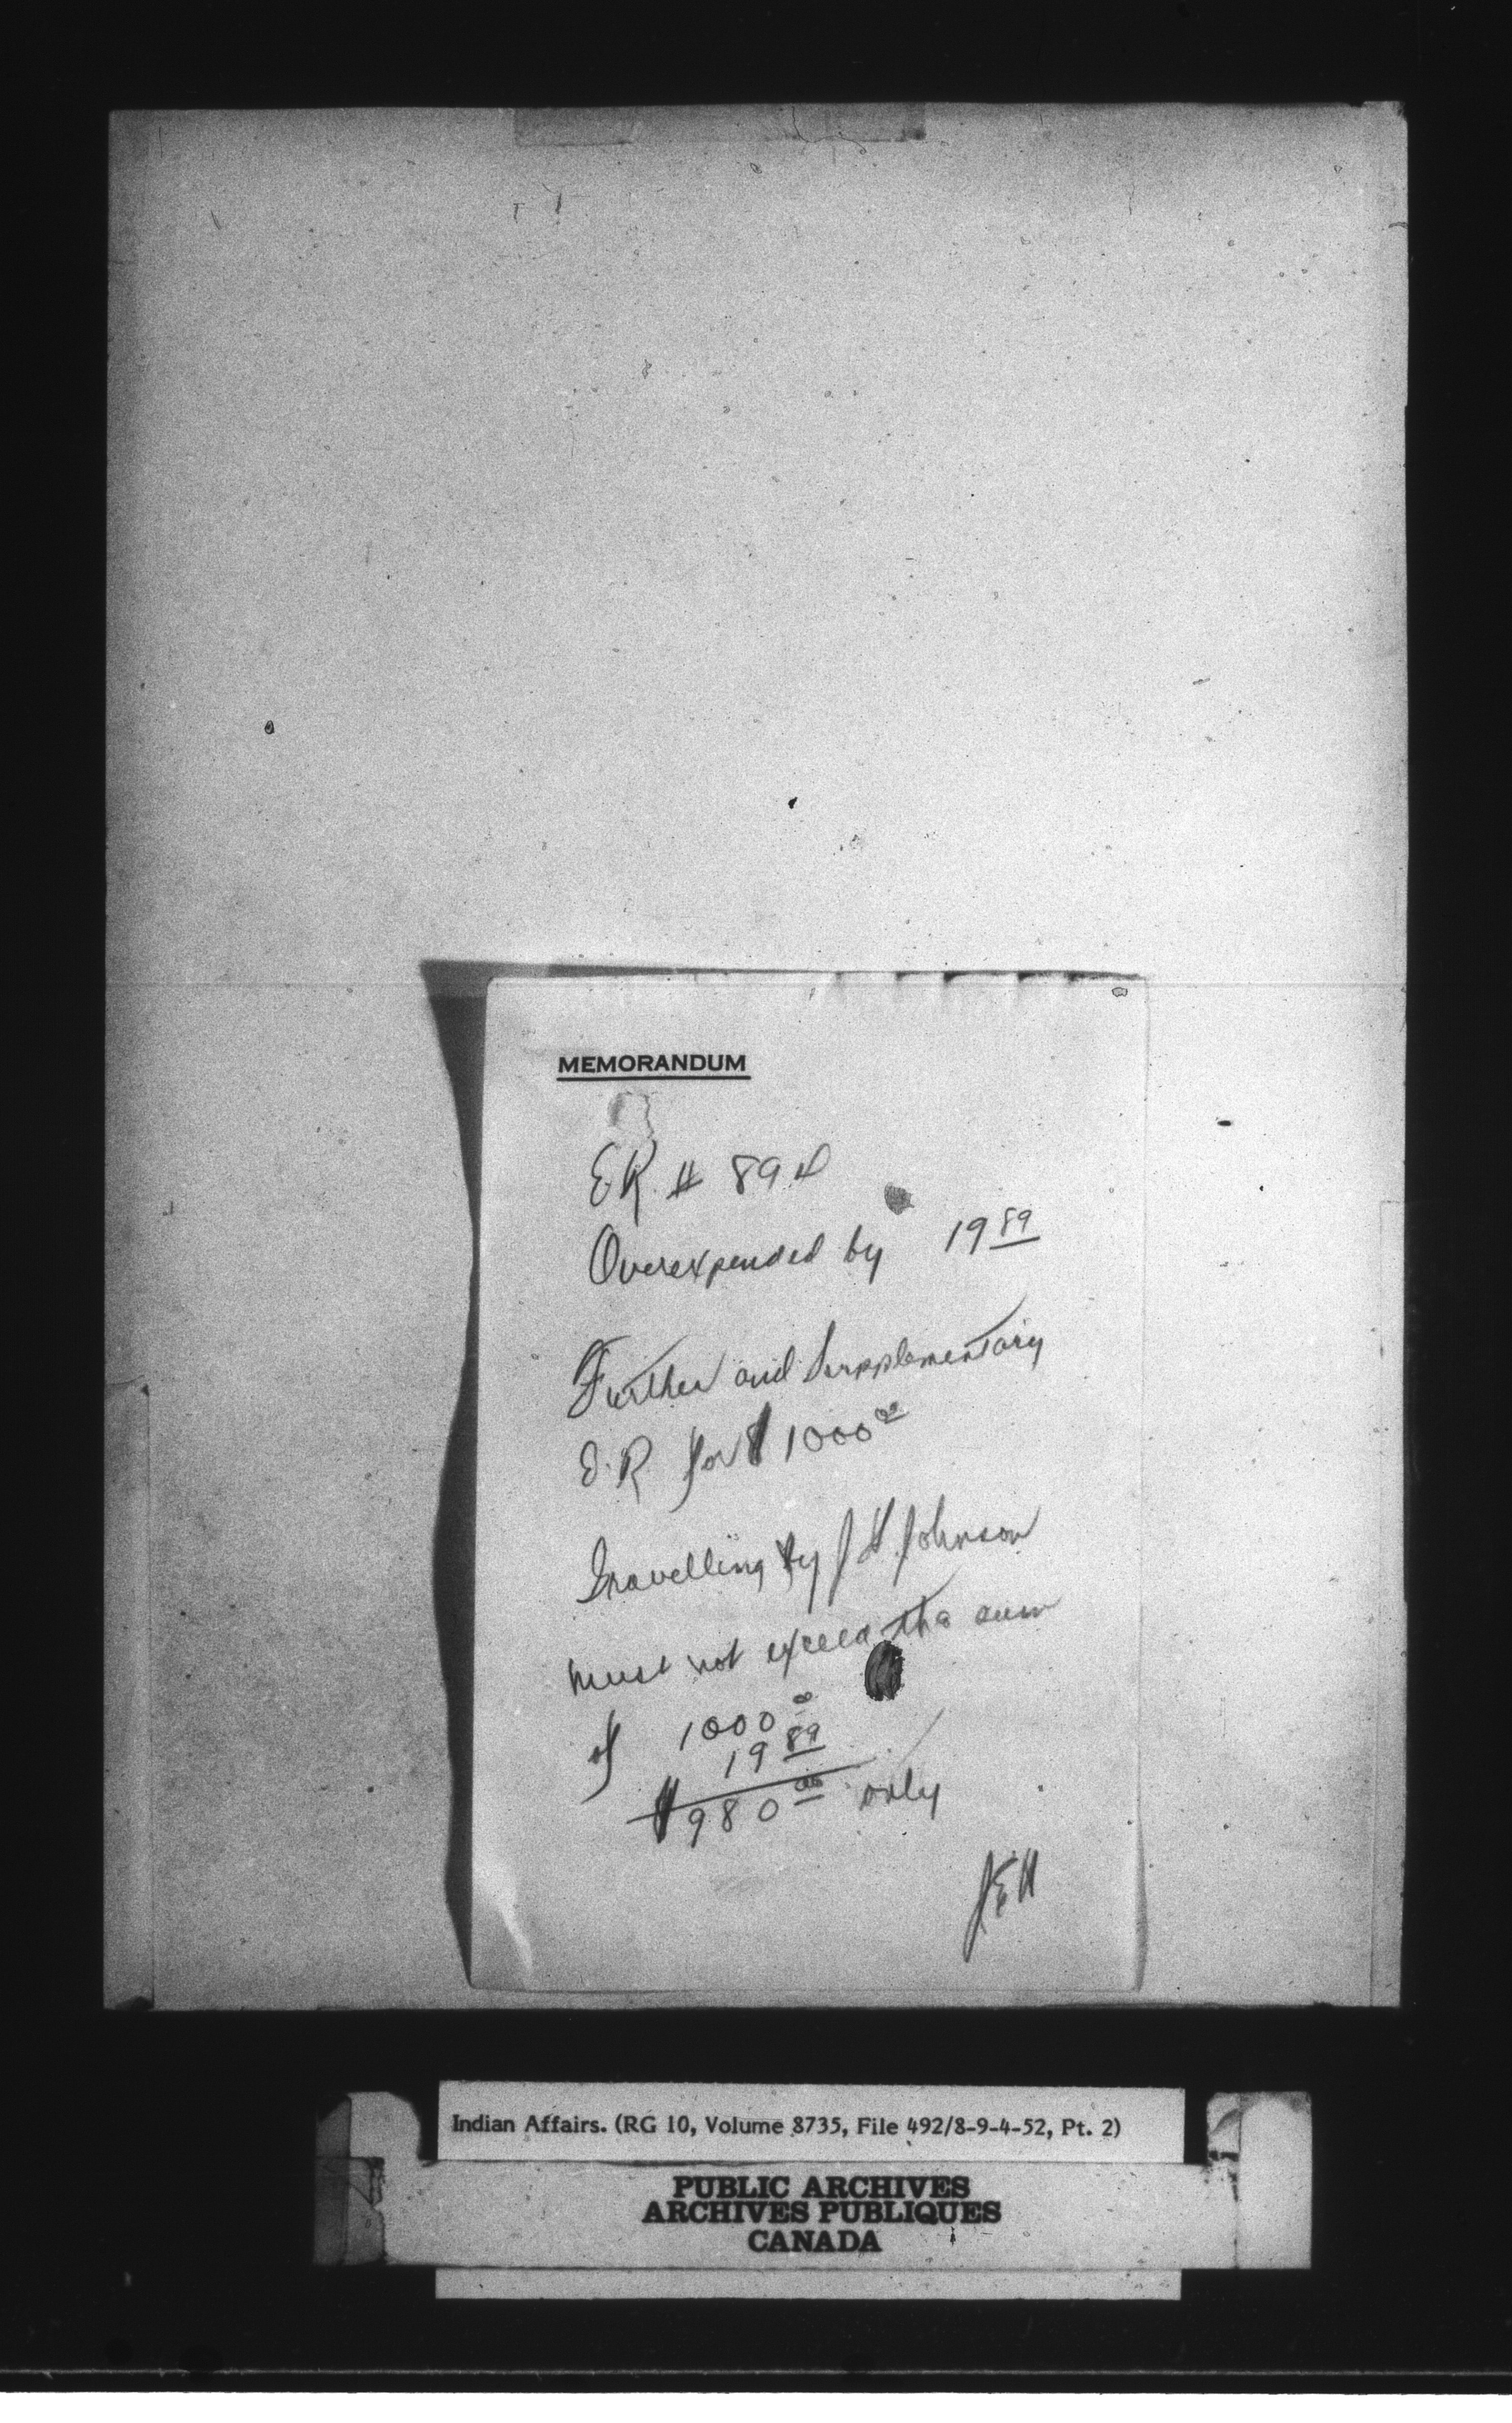 MEMORANDUM
E.R. # 894
Overexpended by 19 89
Further and Supplementary
E.R. for $ 1000 00
Travelling by J H. Johnson
must not exceed the sum
of 1000 00
19 89
$ 980 00 only
JEH
Indian Affairs. (RG 10, Volume 8735, File 492/8-9-4-52, Pt. 2)
PUBLIC ARCHIVES
ARCHIVES PUBLIQUES
CANADA